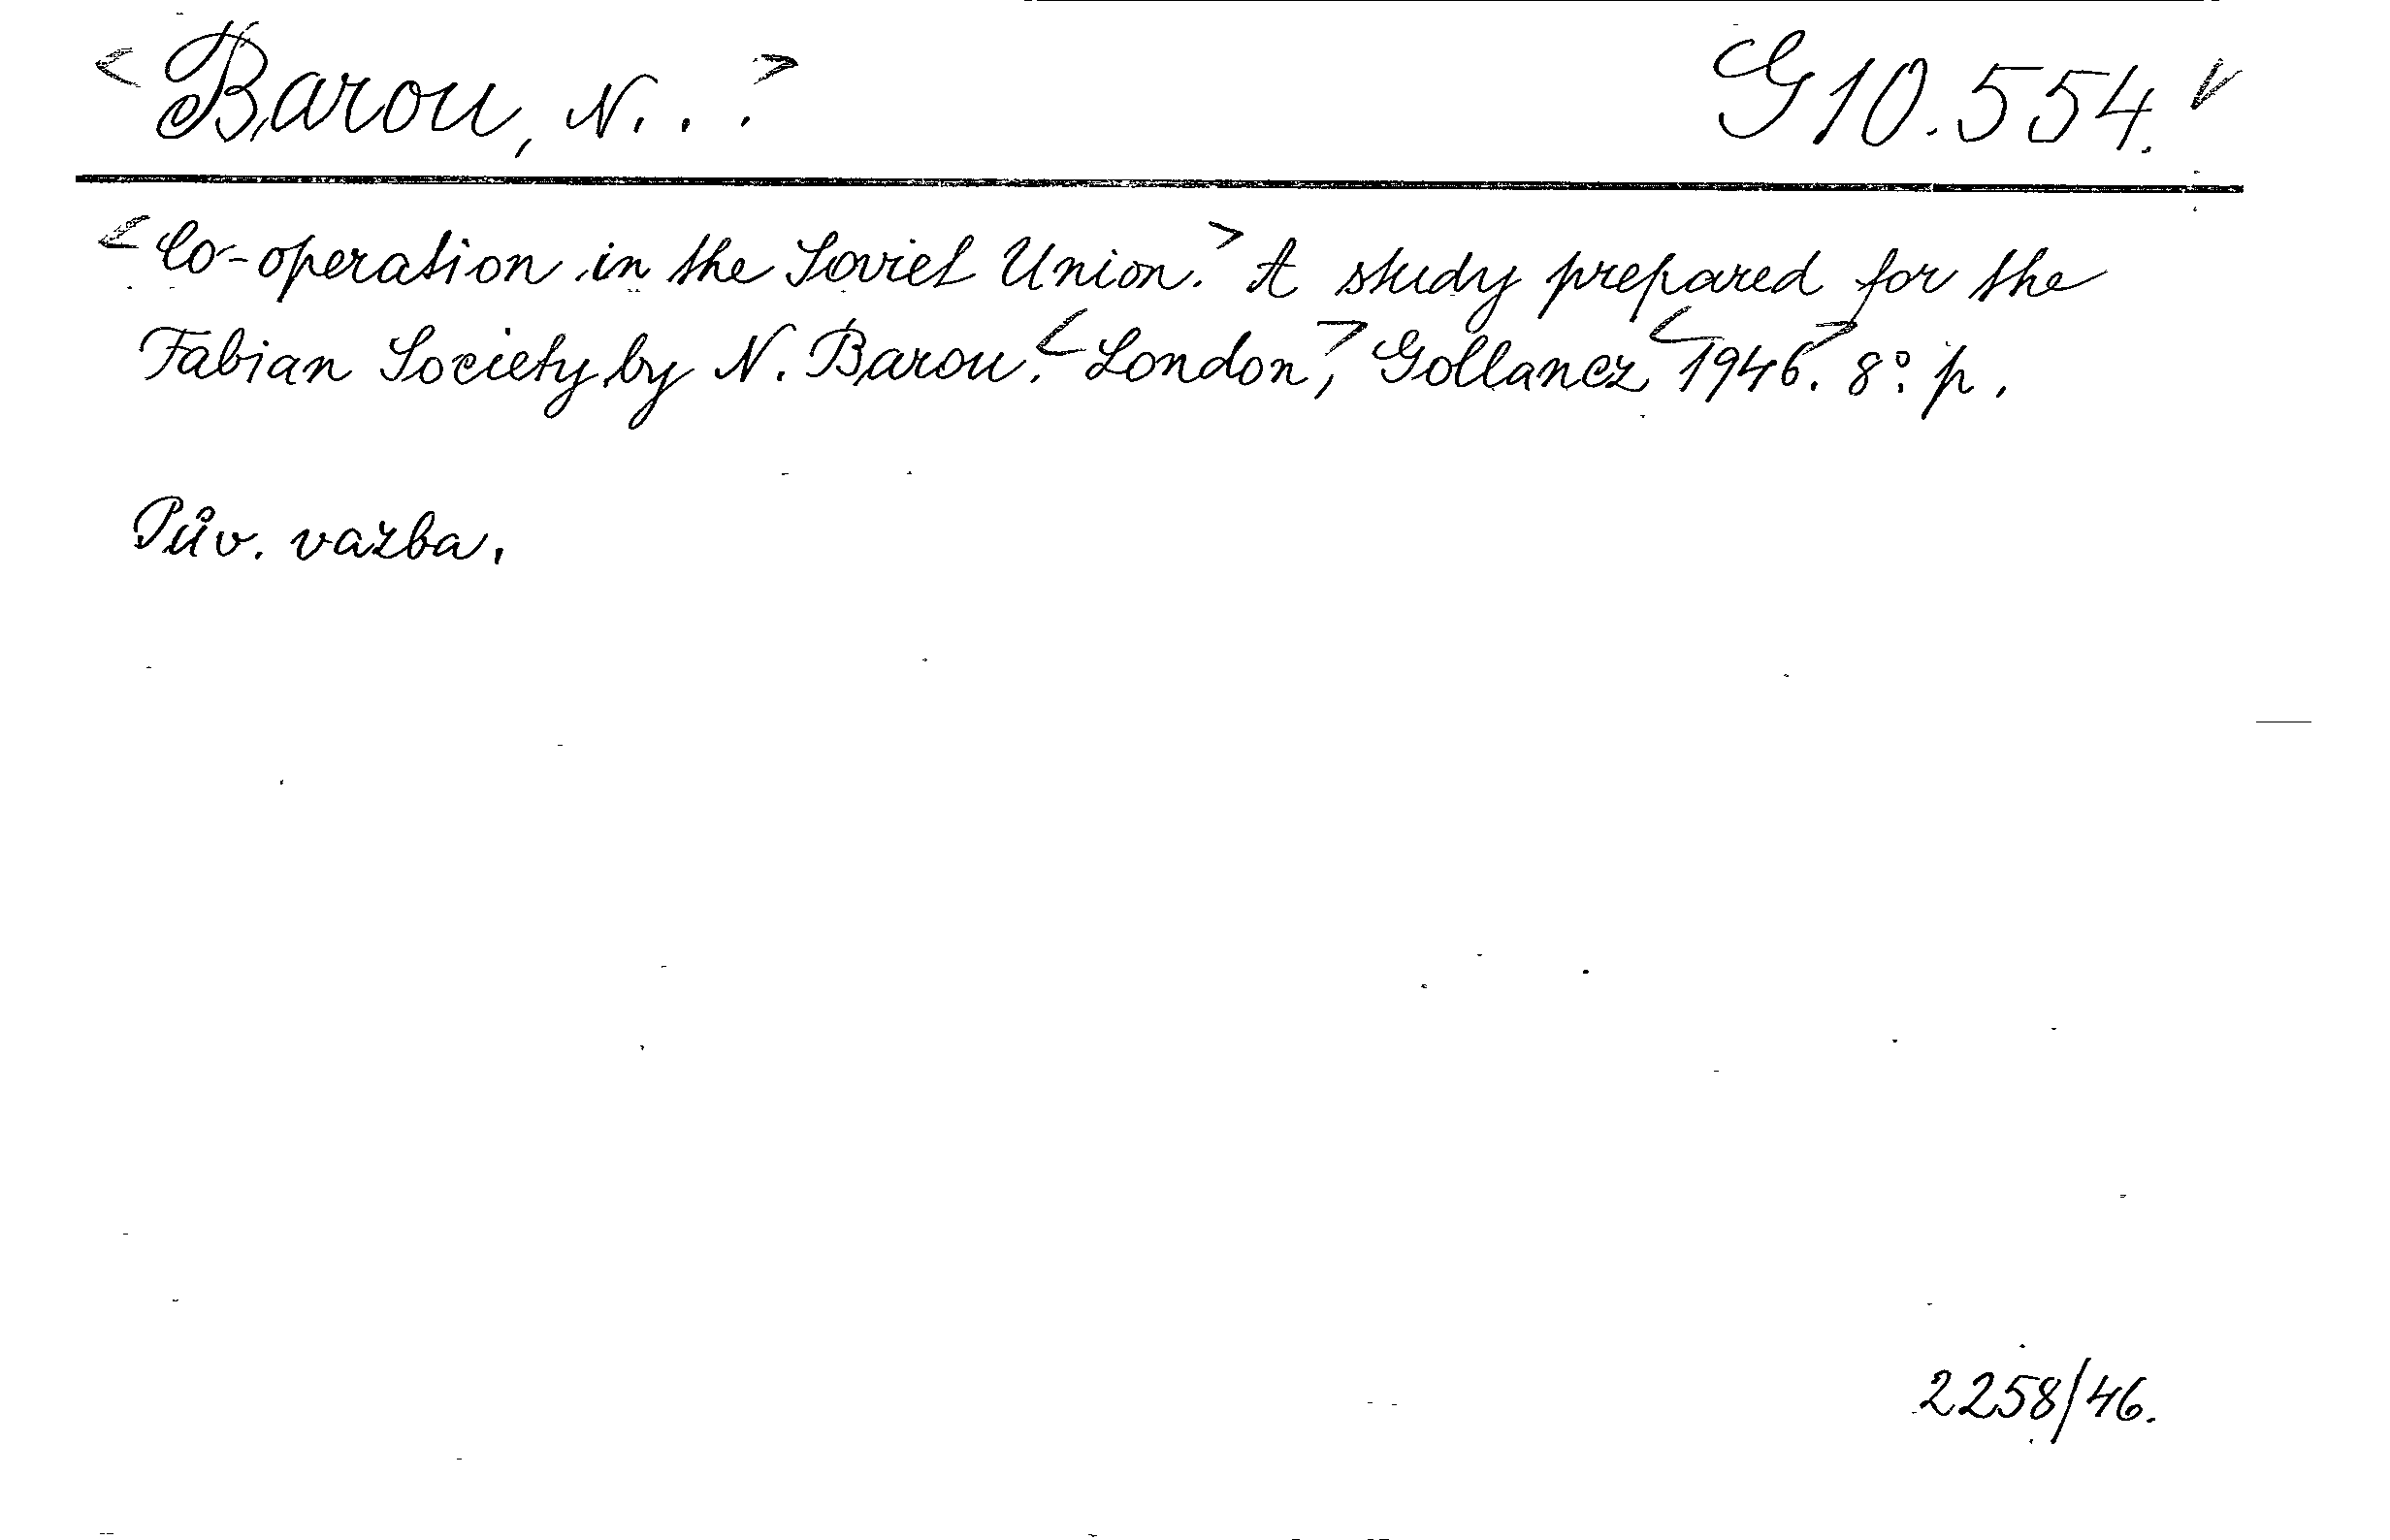 <Barou, N...>
G10.554. v
<Co-operation in the Soviet Union.> A study prepared for the
Fabian Society by N. Barou. <London,> Gollancz <1946.> 8°. p.
Pův. vazba.
2258/46.